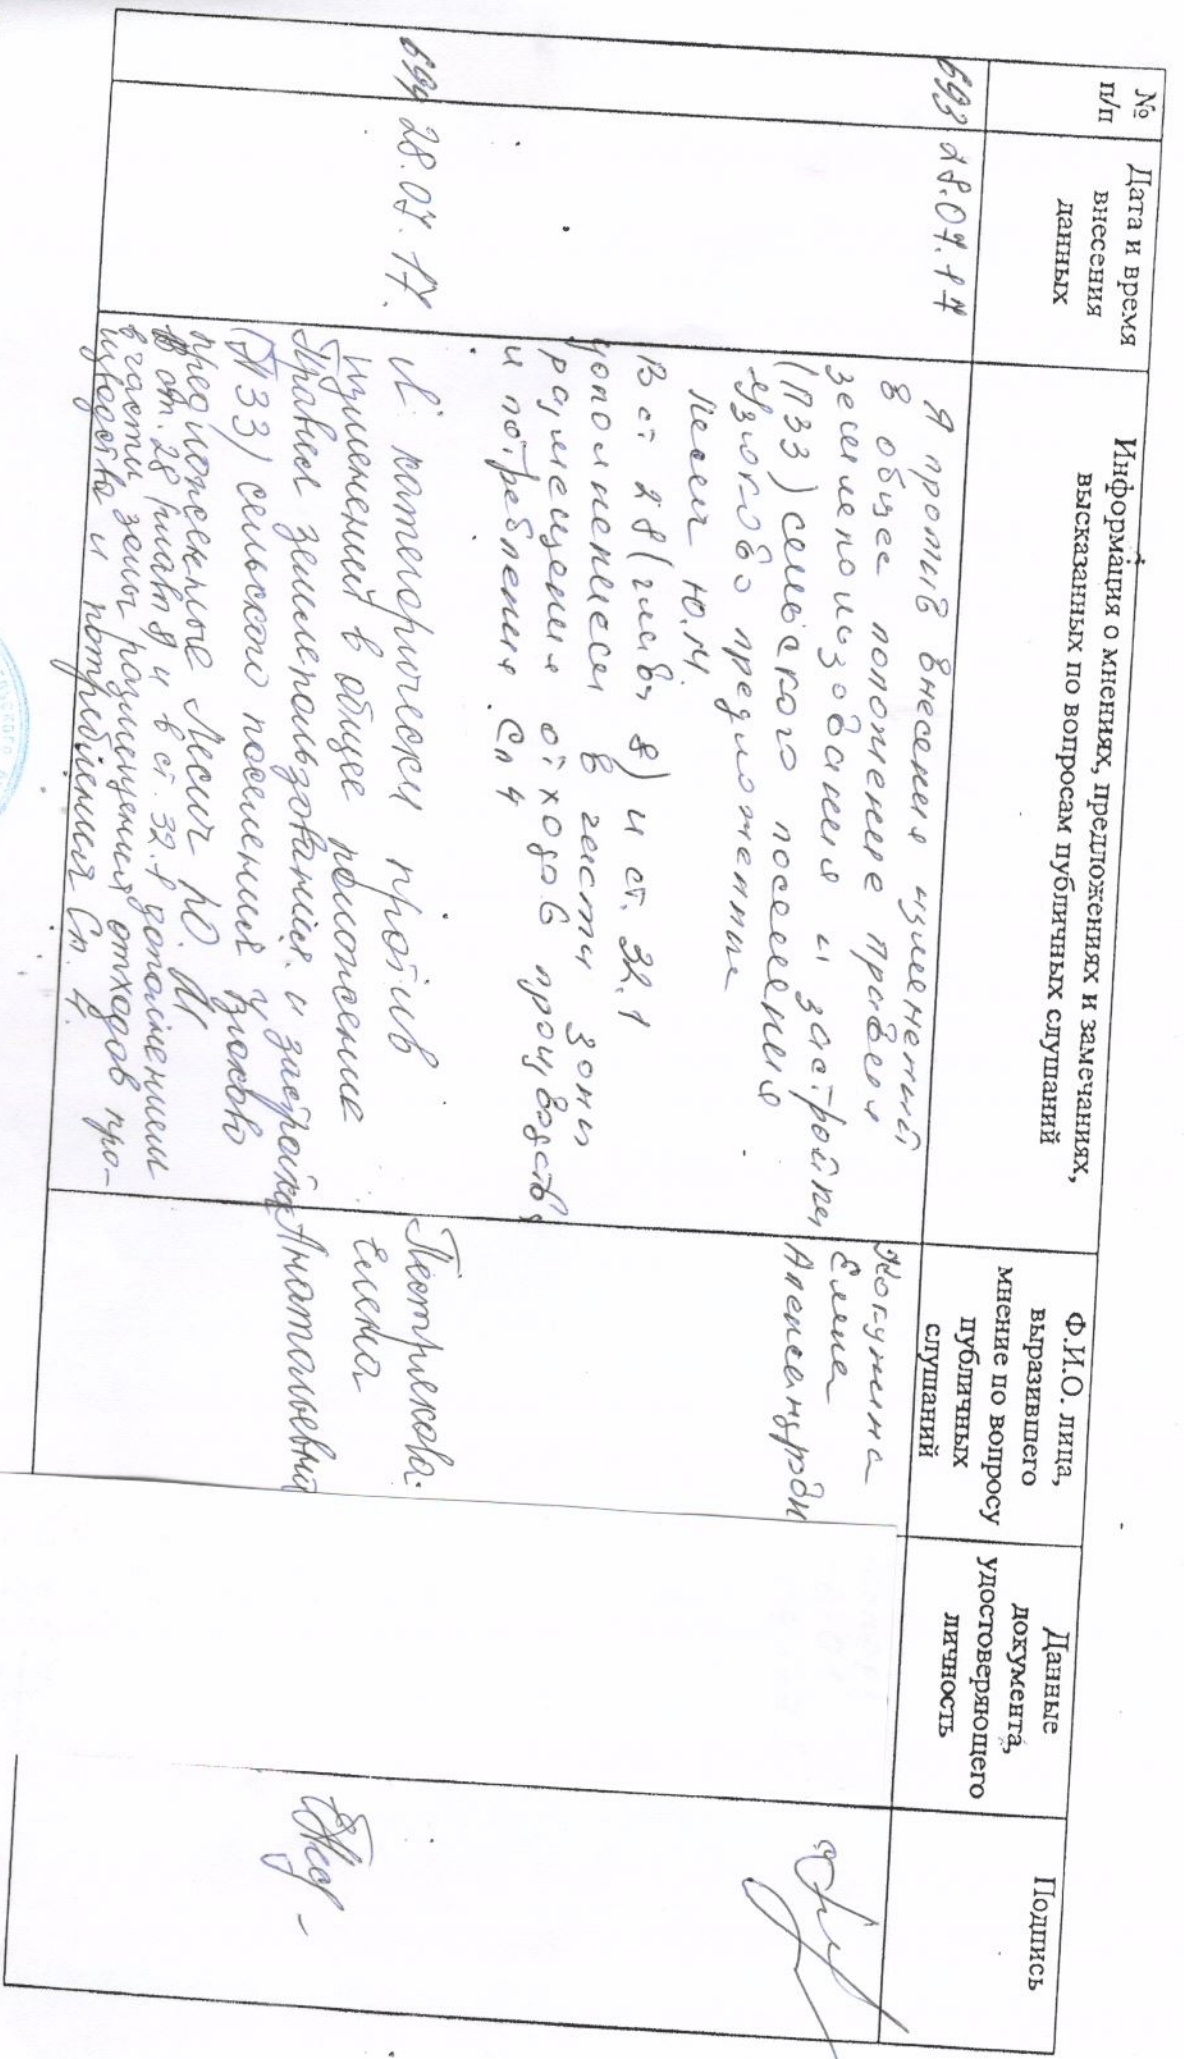 №
п/п
Дата и время
внесения
данных
Информация о мнениях, предложениях и замечаниях,
высказанных по вопросам публичных слушаний
Ф.И.О. лица,
выразившего
мнение по вопросу
публичных
слушаний
Данные
документа,
удостоверяющего
личность
Подпись
693
28.07.17
Я против внесения изменений
в общее положение правил
землепользования и застройки
(ПЗЗ) сельского поселения
Узюково предложенные
Лесич Ю.М.
В ст 28 (глава 8) и ст. 32.1
дополнениеся в части зоны
размещения отходов производства
и потребления Сп 4
Елена
Александровн
694
28.07.17.
Я категорически против
изменений в общее положение
Правил землепользования и застройки
(ПЗЗ) сельского поселения Узюково
предложенные Лесич Ю. М
в ст. 28 (глав 8) и в ст. 32.1 дополнением
в части зоны размещения отходов про-
изводства и потребления Сп. 4.
Пестрякова
Елена
Анатольевна